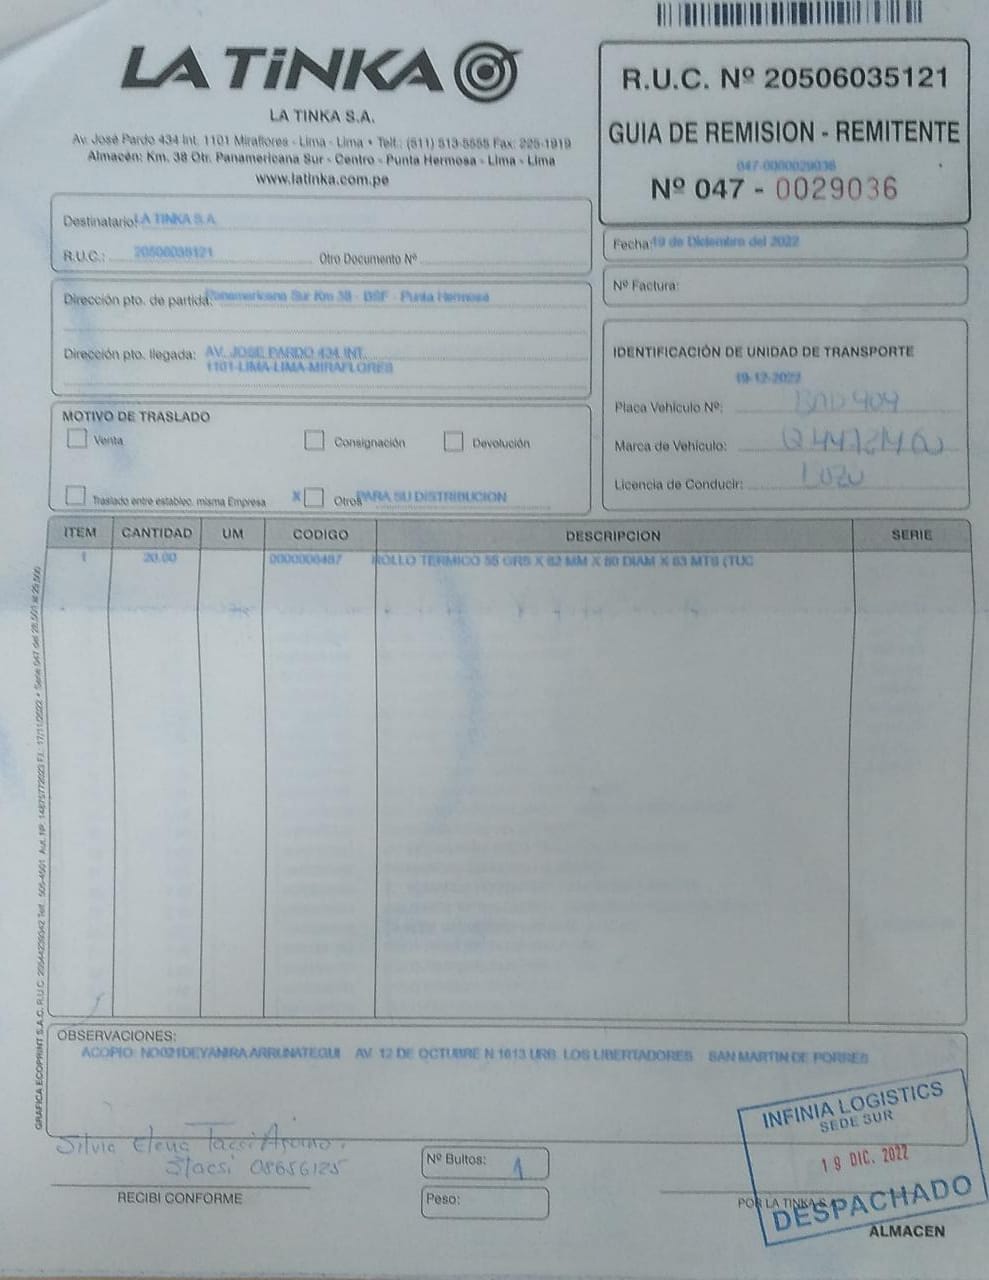 LA TiNKA
LA TINKA S.A.
Av. José Pardo 434 Int. 1101 Miraflores - Lima - Lima • Telf.: (511) 513-5555 Fax: 225-1919
Almacén: Km. 38 Otr. Panamericana Sur - Centro - Punta Hermosa - Lima - Lima
www.latinka.com.pe
R.U.C. Nº 20506035121
GUIA DE REMISION - REMITENTE
047-0000029036
Nº 047 - 0029036
Destinatario: LA TINKA S.A.
R.U.C.: 20506035121 Otro Documento Nº
Fecha: 19 de Diciembre del 2022
Nº Factura:
Dirección pto. de partida: Panamericana Sur Km 38 - BSF - Punta Hermosa
Dirección pto. llegada: AV. JOSE PARDO 434 INT.
1101-LIMA-LIMA-MIRAFLORES
IDENTIFICACIÓN DE UNIDAD DE TRANSPORTE
19-12-2022
Placa Vehículo Nº:
Marca de Vehículo:
Licencia de Conducir:
MOTIVO DE TRASLADO
Venta Consignación Devolución
Traslado entre establec. misma Empresa X Otros PARA SU DISTRIBUCION
ITEM CANTIDAD UM CODIGO DESCRIPCION SERIE
1 20.00 0000006487 ROLLO TERMICO 55 GRS X 82 MM X 80 DIAM X 83 MTS (TUC
OBSERVACIONES:
ACOPIO: NO021DEYANIRA ARRUNATEGUI AV. 12 DE OCTUBRE N 1613 URB. LOS LIBERTADORES SAN MARTIN DE PORRES
Silvia Elena Tacsi
Stacsi 08656125
RECIBI CONFORME
Nº Bultos: 1
Peso:
INFINIA LOGISTICS
SEDE SUR
19 DIC. 2022
DESPACHADO
POR LA TINKA S.A.
ALMACEN